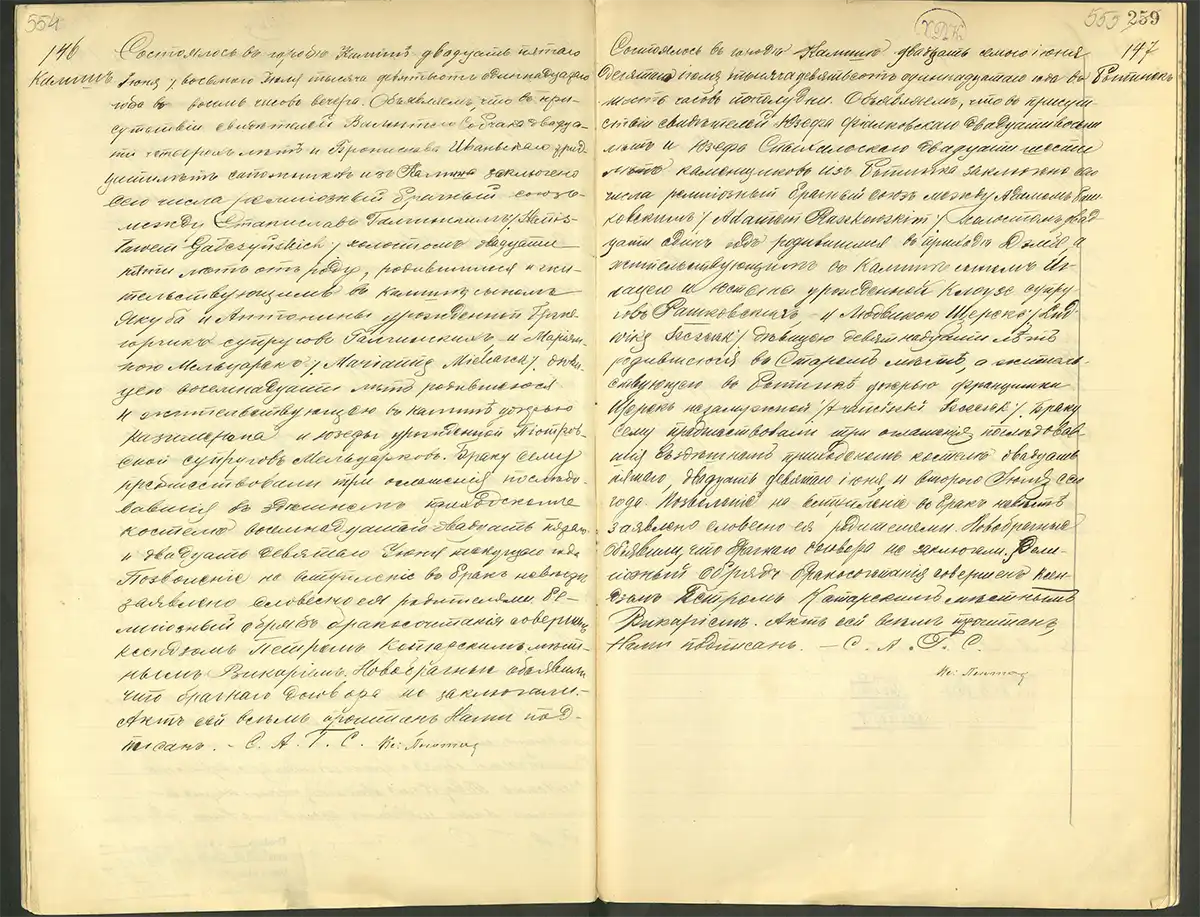 554
146
Калишъ
Состоялось въ городѣ Калишѣ двадцать пятаго
Іюня / восьмого Іюля тысяча девятьсотъ одиннадцатаго
года въ восемь часовъ вечера. Объявляемъ, что въ при-
сутствіи свидѣтелей Валентаго двадца-
ти четырехъ лѣтъ и Бронислава трид-
цати лѣтъ изъ Калиша заключенъ
сего числа религіозный брачный союзъ
между Станиславомъ Галчинскимъ / Stanis-
lawem Gałczyńskich / холостымъ двадцати
пяти лѣтъ отъ роду, родившимся и жи-
тельствующимъ въ Калишѣ сыномъ
Якуба и Антонины урожденной Грже-
горчикъ супруговъ Галчинскихъ и Маріан-
ною Мельцарекъ / Marianną Mielcarek / дѣви-
цею восемнадцати лѣтъ родившеюся
и жительствующею въ Калишѣ дочерью
Казимержа и Юзефы урожденной Піотров-
ской супруговъ Мельцарковъ. Браку сему
предшествовали три оглашенія послѣдо-
вавшія въ здѣшнемъ приходскомъ
костелѣ восемнадцатаго двадцать пятаго
и двадцать девятаго Іюня текущаго года
Позволеніе на вступленіе въ бракъ невѣстѣ
заявлено словесно ея родителями. Ре-
лигіозный обрядъ бракосочетанія совершенъ
ксендзомъ Петромъ Котарскимъ мѣст-
нымъ Викаріемъ. Новобрачные объявили
что брачнаго договора не заключили.
Актъ сей всѣмъ прочитанъ Нами под-
писанъ. – С. А. Г. С.
555 259
147
Состоялось въ городѣ Калишѣ двадцать седьмого іюня
десятаго іюля тысяча девятьсотъ одиннадцатаго года въ
шесть часовъ пополудни. Объявляемъ, что въ присут-
ствіи свидѣтелей Юзефа Фіалковскаго двадцати восьми
лѣтъ и Юзефа двадцати шести
лѣтъ каменщиковъ изъ заключенъ сего
числа религіозный брачный союзъ между Адамомъ Раш-
ковскимъ / Adamem Raszkowskim / холостымъ двад-
цати одинъ годъ родившимся въ приходѣ а
жительствующимъ въ Калишѣ сыномъ Иг-
нацего и Юстины урожденной супру-
говъ Рашковскихъ – и Людвикою Щесякъ / Lud-
wiką Szczesiak / дѣвицею девятнадцати лѣтъ
родившеюся въ Старемъ мѣстѣ, а житель-
ствующею въ дочерью Францишки
Щесякъ незамужней / Franciszki Szczesiak /. Браку
сему предшествовали три оглашенія послѣдовав-
шія въ здѣшнемъ приходскомъ костелѣ двадцать
пятаго двадцать девятаго іюня и второго Іюля сего
года. Позволеніе на вступленіе въ бракъ невѣстѣ
заявлено словесно ея родителями. Новобрачные
объявили, что брачнаго договора не заключили. Рели-
гіозный обрядъ бракосочетанія совершенъ Ксен-
дзомъ Петромъ Котарскимъ мѣстнымъ
Викаріемъ. Актъ сей всѣмъ прочитанъ,
Нами подписанъ. – С. А. Г. С.